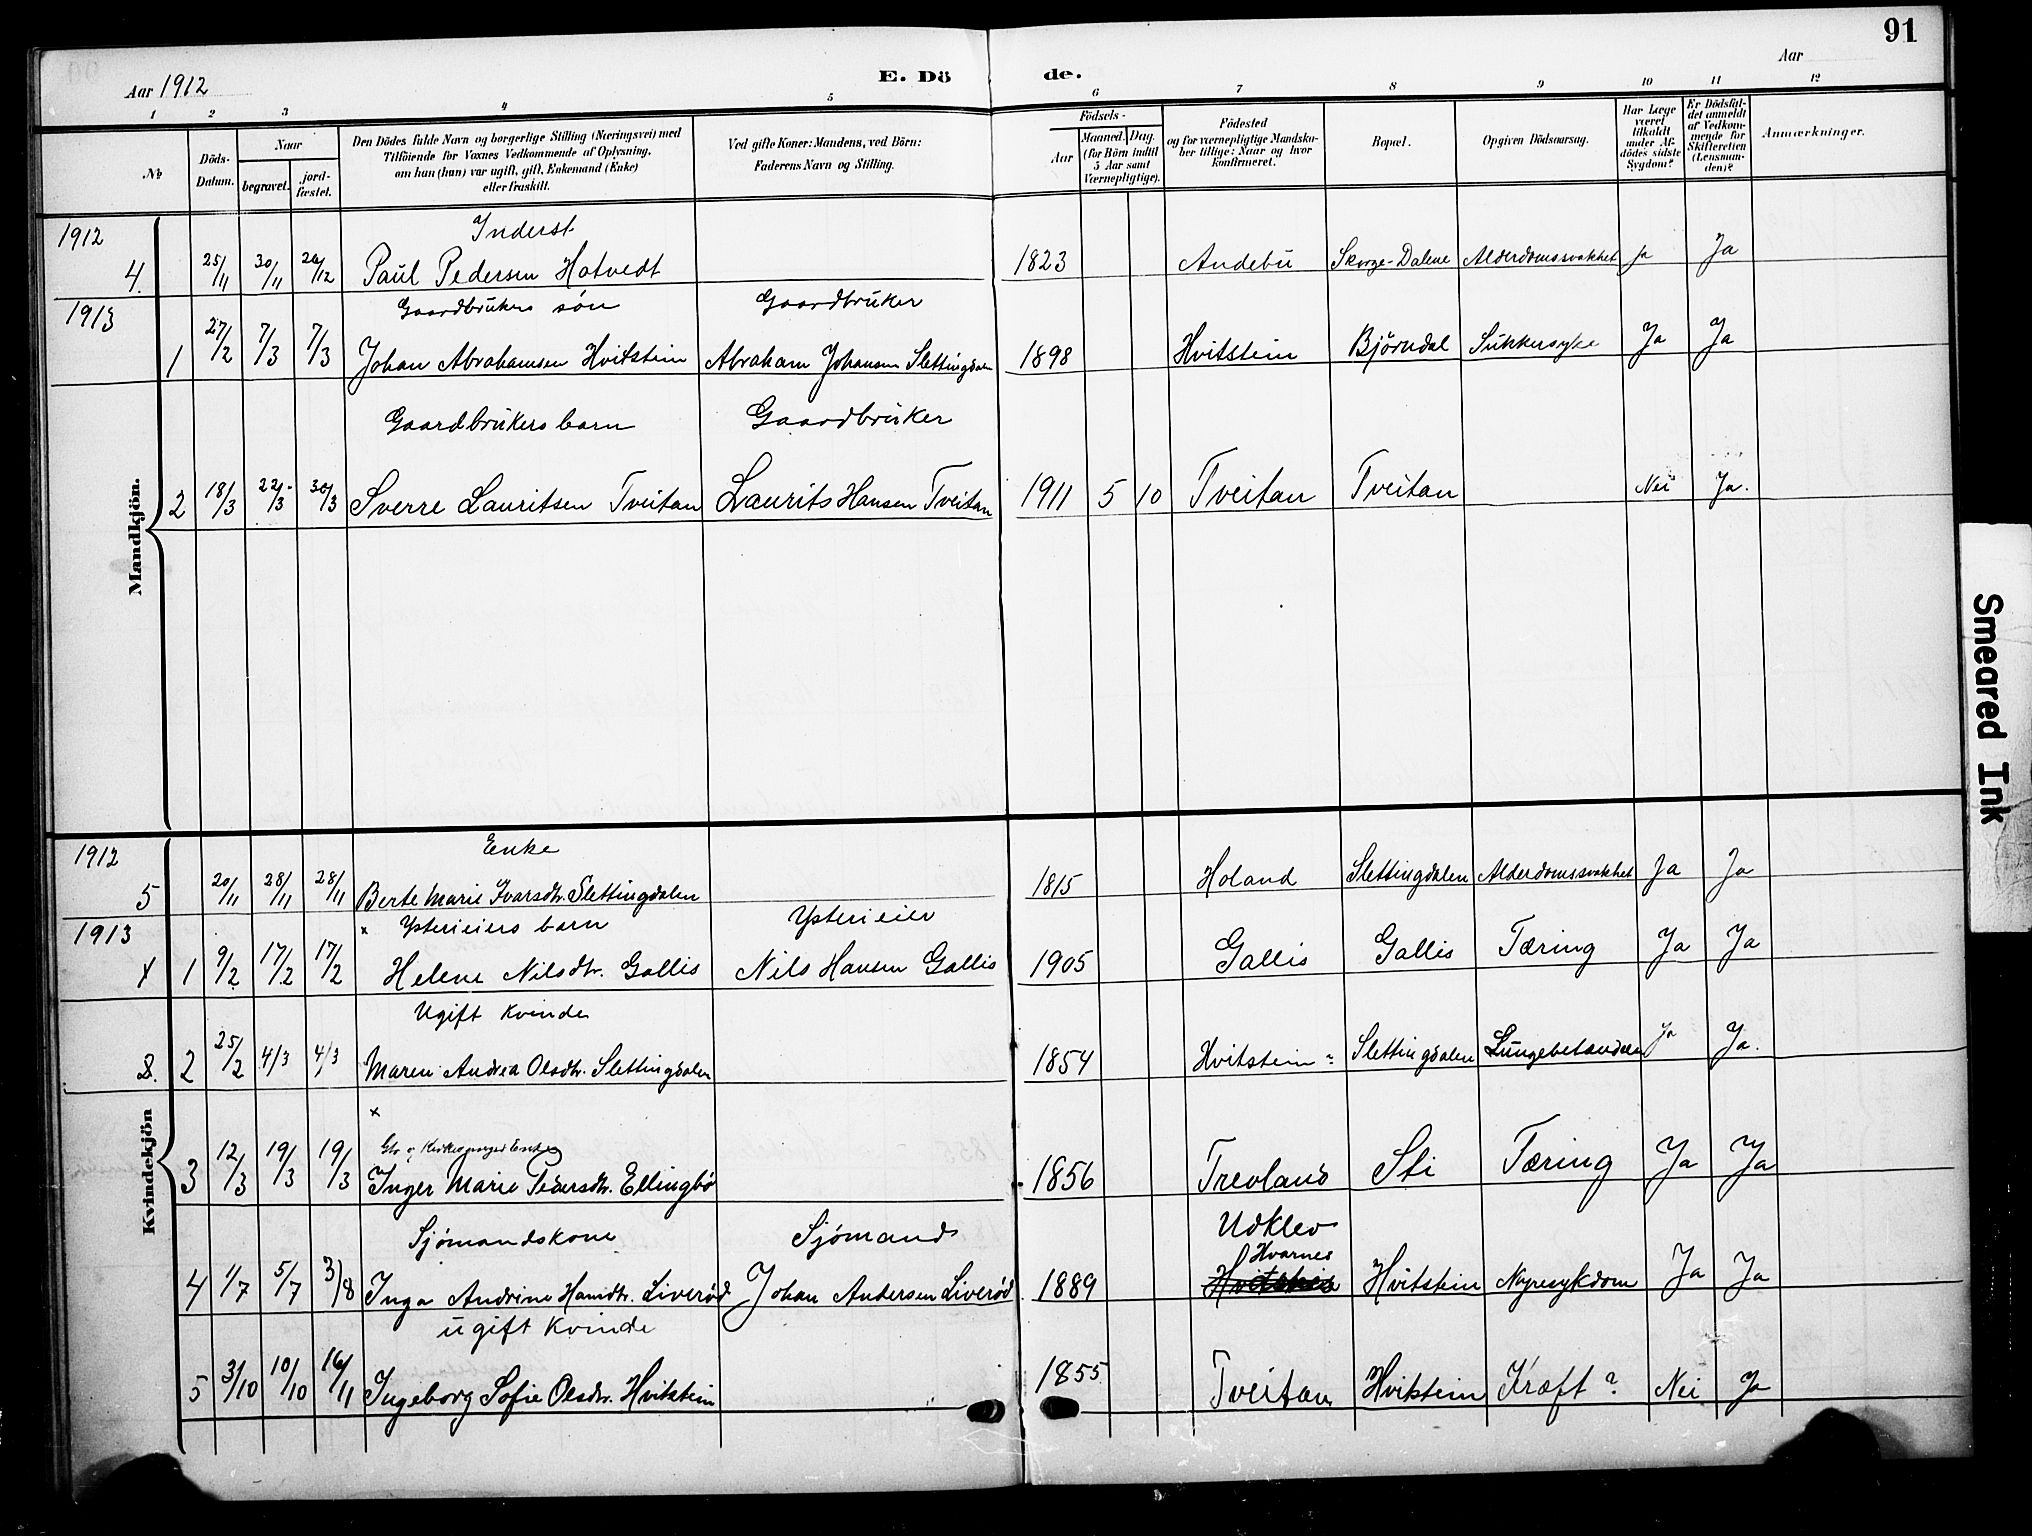 91
Aar 1912
E. Dö de.
Aar
1 2 3 4 5 6 7 8 9 10 11 12
№
Döds-Datum.
Naar
begravet.
jord-fæstet.
Den Dödes fulde Navn og borgerlige Stilling (Næringsvei) med
Tilföiende for Voxnes Vedkommende af Oplysning,
om han (hun) var ugift, gift, Enkemand (Enke)
eller fraskilt.
Ved gifte Koner: Mandens, ved Börn:
Faderens Navn og Stilling.
Födsels-
Aar
Maaned. Dag.
(for Börn indtil
5 Aar samt
Værnepligtige).
Födested
og for værnepligtige Mandska-
ber tillige: Naar og hvor
konfirmeret.
Bopæl.
Opgiven Dödsaarsag.
Har Læge
været
tilkaldt
under Af-
dödes sidste
Sygdom?
Er Dödsfal-
det anmeldt
af Vedkom-
mende for
Skifteretten
(Lensman-
den)?
Anmærkninger.
Mandkjön.
1912
Inderst
4. 25/11 30/11 26/12 Paul Pedersen Hotvedt 1823 Andebu Skorge-Dalene Alderdomssvakhet Ja Ja
1913
Gaardbrukers søn Gaardbruker
1 27/2 7/3 7/3 Johan Abrahamsen Hvitstein Abraham Johansen Slettingdalen 1898 Hvitstein Björndal Sukkersyke Ja Ja
Gaardbrukers barn Gaardbruker
2 18/3 22/3 30/3 Sverre Lauritsen Tveitan Laurits Hansen Tveitan 1911 5 10 Tveitan Tveitan Nei Ja.
Kvindekjön
1912
Enke
5 20/11 28/11 28/11 Berte Marie Ivarsdtr. Slettingdalen 1815 Holand Slettingdalen Alderdomssvakhet Ja Ja
1913
x Ysterieiers barn Ysterieier
x 1 9/2 17/2 17/2 Helene Nilsdtr. Gallis Nils Hansen Gallis 1905 Gallis Gallis Tæring Ja Ja
Ugift Kvinde
2. 2 25/2 4/3 4/3 Maren Andrea Olsdtr. Slettingdalen 1854 Hvitstein? Slettingdalen Lungebetændelse Ja Ja.
x
Gbr og Kirkesanger Enke
3 12/3 19/3 19/3 Inger Marie Pedersdtr. Ellingbø 1856 Trevland Sti Tæring Ja Ja
Sjømandskone Sjømand Udklev
Hvarnes
4 1/7 5/7 3/8 Inga Andrine Hansdtr. Liverød Johan Andersen Liverød 1889 Hvitstein Hvitstein Nyresykdom Ja Ja
ugift Kvinde
5 3/10 10/10 16/11 Ingeborg Sofie Olsdtr. Hvitstein 1855 Tveitan Hvitstein Kræft? Nei Ja
Smeared Ink